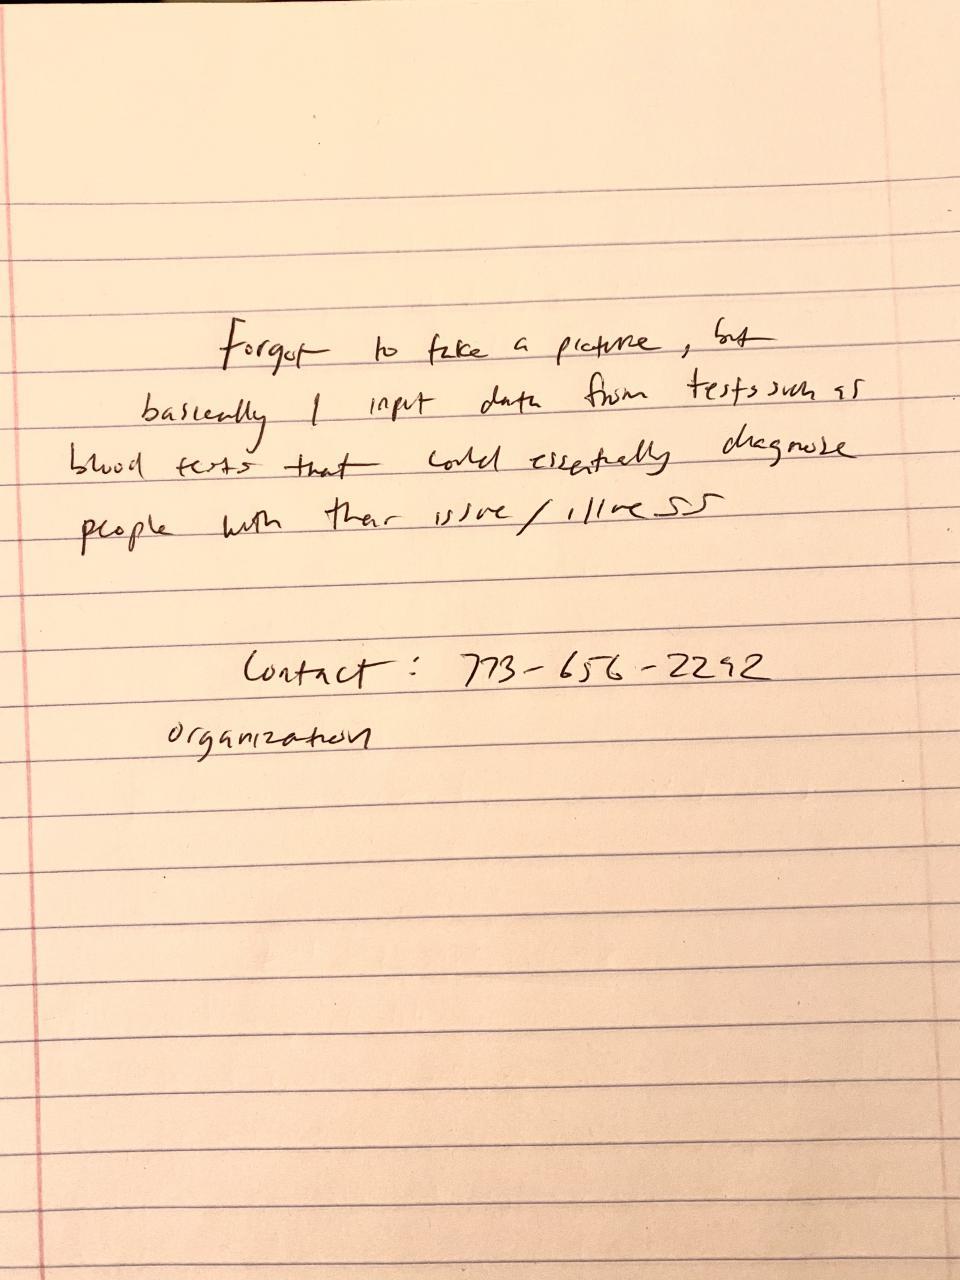 Forgot to take a picture, but
basically I input data from tests such as
blood tests that could essentially diagnose
people with their issue/illness
Contact: 773-656-2292
organization